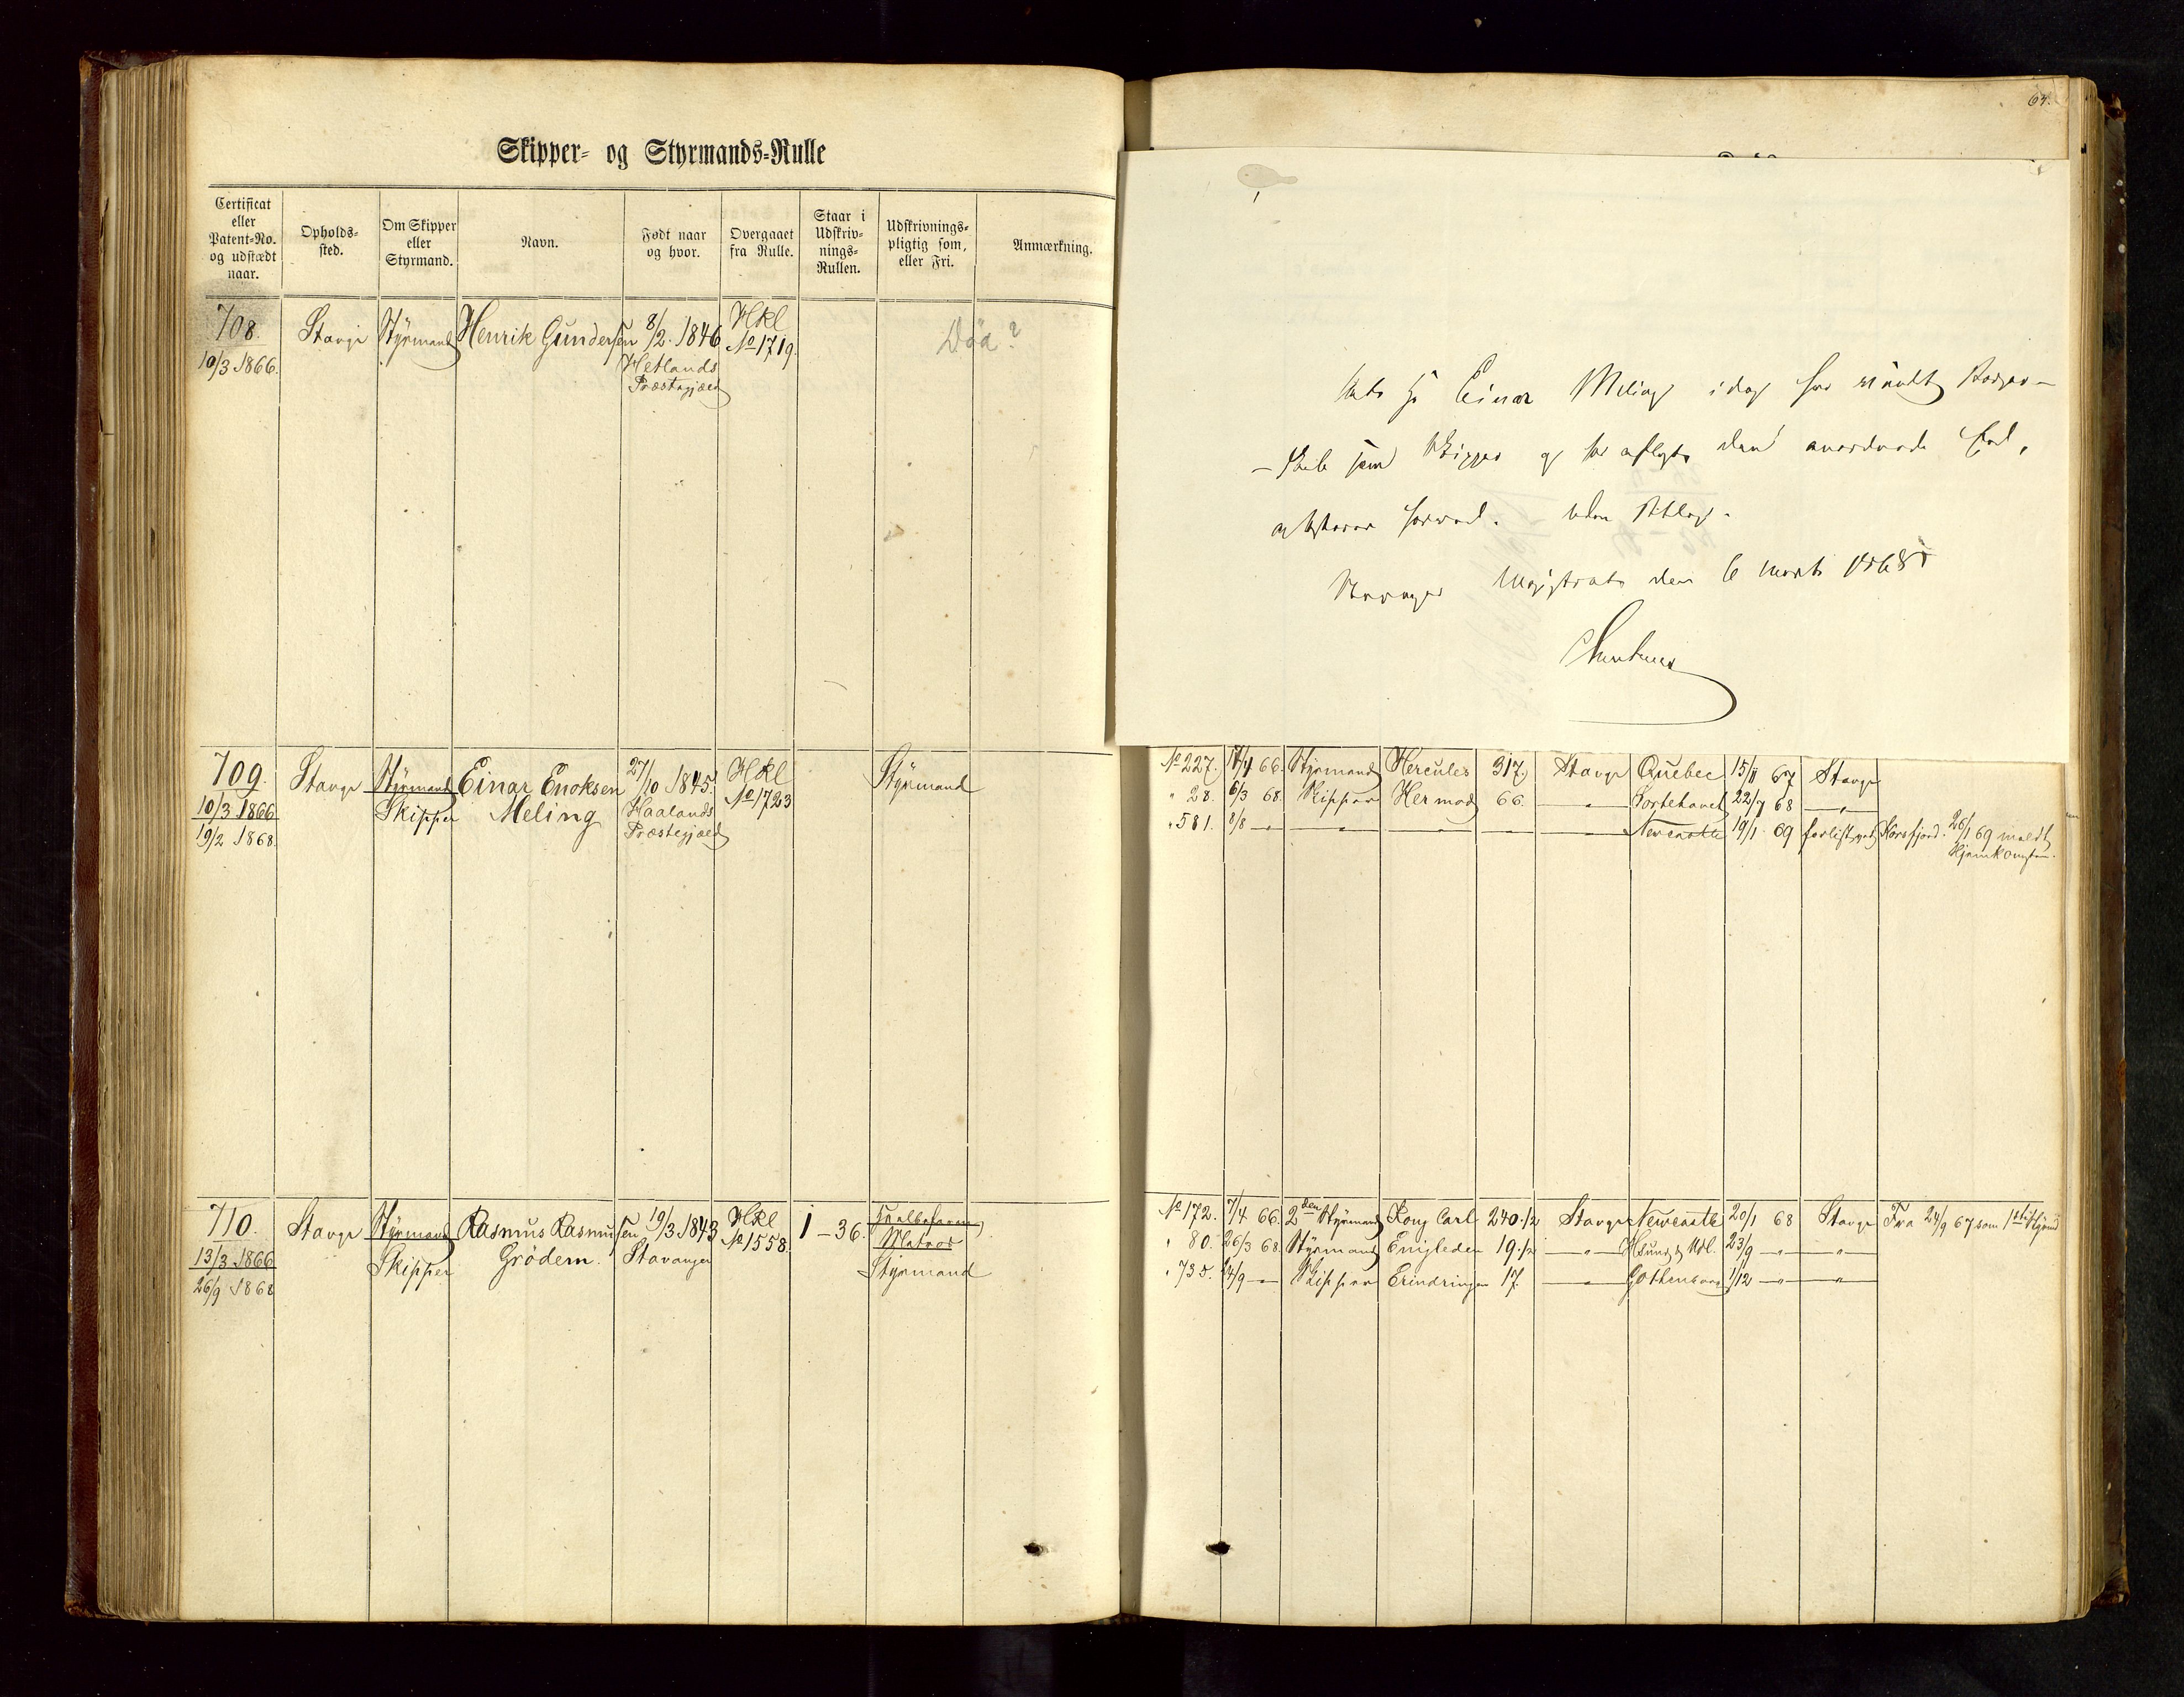 64.
Skipper- og Styrmands-Rulle
Certificat eller Patent-No. og udstædt naar.
Opholds-sted.
Om Skipper eller Styrmand.
Navn.
Født naar og hvor.
Overgaaet fra Rulle.
Staar i Udskriv-nings-Rullen.
Udskrivnings-pligtig som, eller Fri.
Anmærkning.
708. Stavgr Styrmand Henrik Gundersen 8/2. 1846 HKl Död?
10/3 1866. Hetlands No 1719.
Præstegjæld
709. Stavgr Styrmand Einar Enoksen 27/10 1845. HKl Styrmand
10/3 1866 Skipper Meling Haalands No 1723
19/2 1868. Præstegjæld
710. Stavgr Styrmand Rasmus Rasmussen 19/3 1843 HKl 1-36. Halvbefaren
13/3 1866 Skipper Grödem. Stavanger No 1558. Matros
26/9 1868 Styrmand
Einar Meling idag har vundet Borger-
-skab som Skipper og har aflagt den anordnede Eed,
Stavanger Magistrat den 6 Marts 1868
No 227. 17/4 66. Styrmand Hercules 317. Stavgr Quebec 15/11 67 Stavgr
" 28. 6/3 68. Skipper Hermod 66. — " — Sortehavet 22/7 68 — " —
" 581. 8/8 — " — — " — — " — — " — Newcastle 19/1 69 forlist ved Korsfjord. 26/1 69 meldt
Hjemkomsten.
No 172. 7/4 66. 2den Styrmand Kong Carl 240 1/2 Stavgr Newcastle 20/1 68 Stavgr Fra 24/9 67 som 1ste Styrmd
" 80. 26/3 68. Styrmand Enigheden 19 1/2 — " — 23/9 — " — — " —
" 735. 14/9 — " — Skipper Erindringen 17. — " — Gottenborg 1/12 — " — — " —